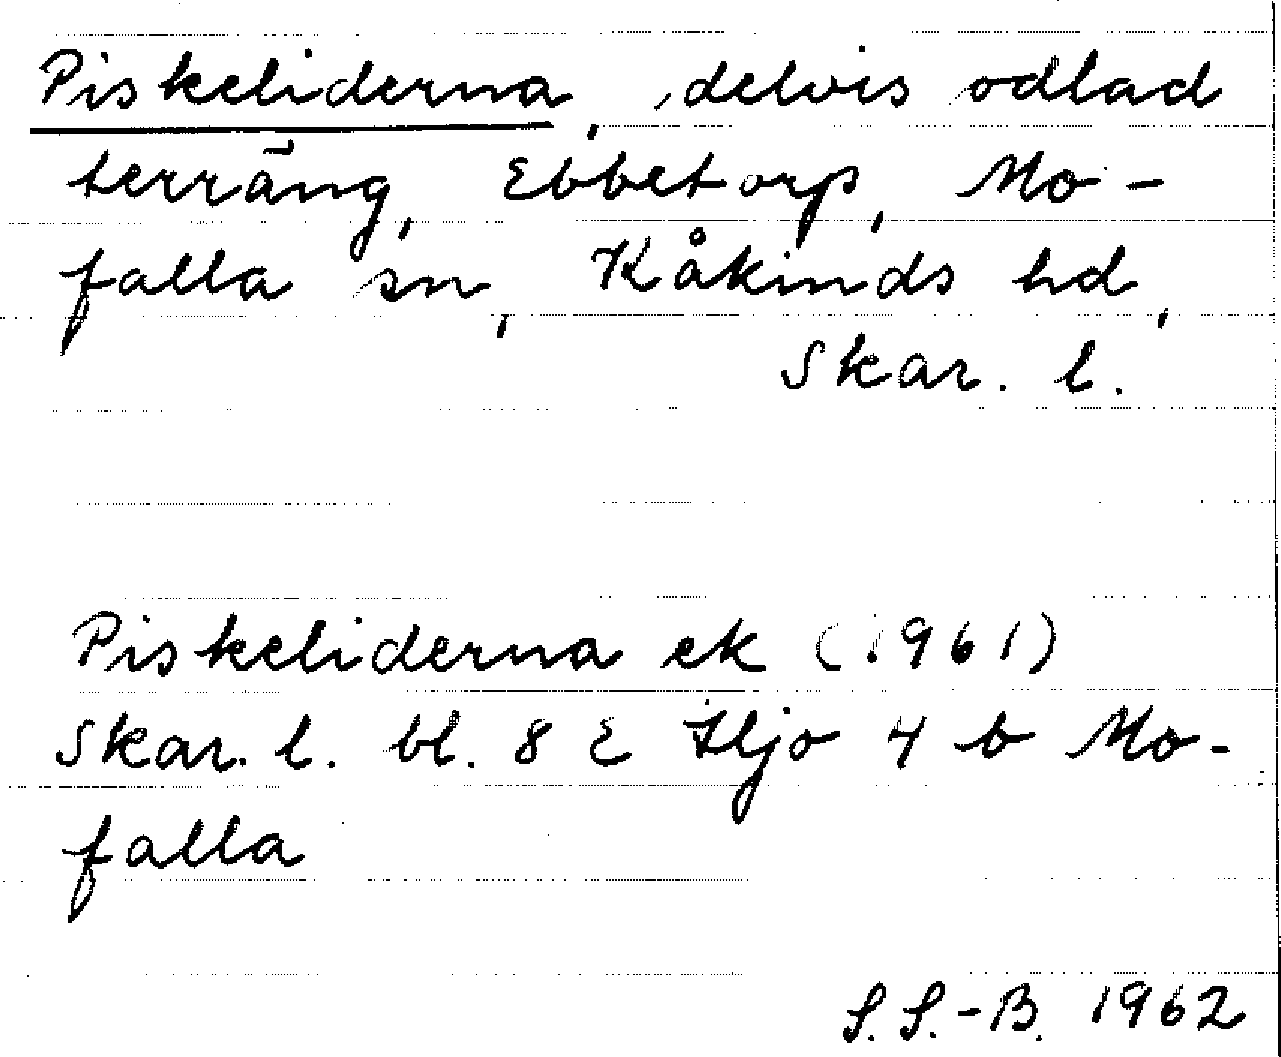 Piskeliderna, delvis odlad
terräng, Ebbetorp, Mo-
falla sn, Kåkinds hd,
Skar. l.
Piskeliderna ek (1961)
Skar. l. bl. 8 E Hjo 4 b Mo-
falla
S. S.-B. 1962